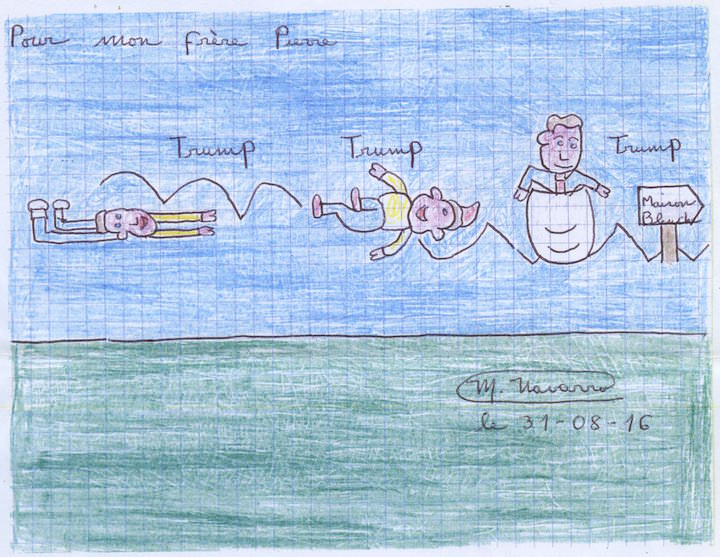 Pour mon frère Pierre
Trump
Trump
Trump
Maison
Blanch
M. Navarro
le 31-08-16